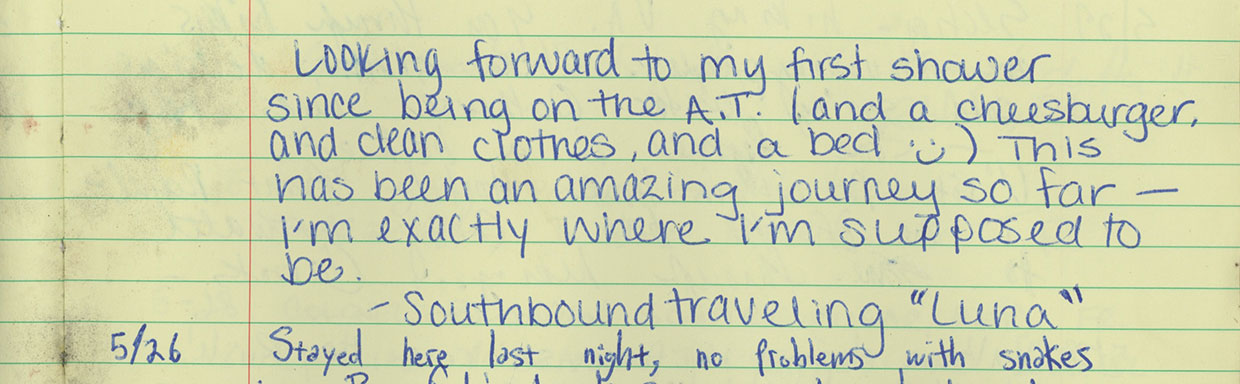 Looking forward to my first shower
since being on the A.T. (and a cheesburger,
and clean clothes, and a bed :)) This
has been an amazing journey so far —
I'm exactly where I'm supposed to
be.
- Southbound traveling "Luna"
5/26 Stayed here last night, no problems with snakes